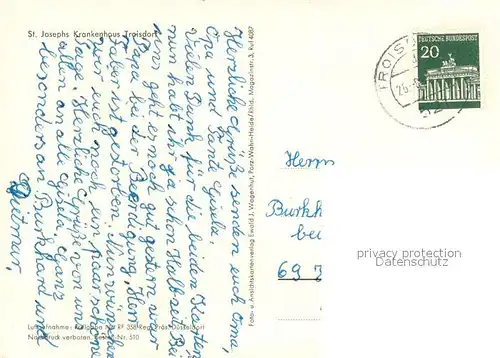 St. Josephs Krankenhaus Troisdorf
Herzliche Grüße senden euch Oma,
Opa und Tante Gisela.
Vielen Dank für die beiden Karten
nun habt ihr ja schon Halbzeit. Bei
uns geht er noch gut gestern war
Papa bei der Beerdigung, Herr
Faber ist gestorben. Nun wünschen
wir euch noch ein paar schöne
Tage. Herzliche Grüße von uns
allen an alle Gisela. Ganz
besonders an Burkhard und
Dietmar,
Luftaufnahme: Nr. RP Reg. Präs. Düsseldorf
Nachdruck verboten. Bestell-Nr. 510
Foto- u. Ansichtskartenverlag Ewald J. Wagenhut, Porz-Wahn-Heide/Rhld. Magazinstr. 3, Ruf 4087
DEUTSCHE BUNDESPOST
20
TROISD
Herrn
Burkh
bei
69
privacy protection
Datenschutz